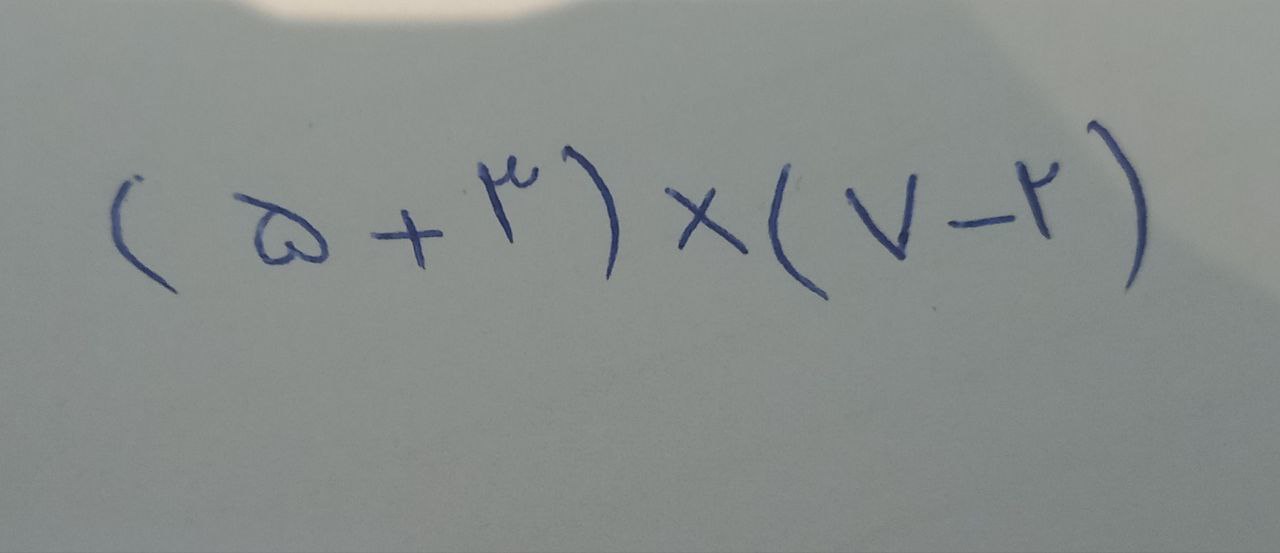 (۵+۳)×(۷-۲)